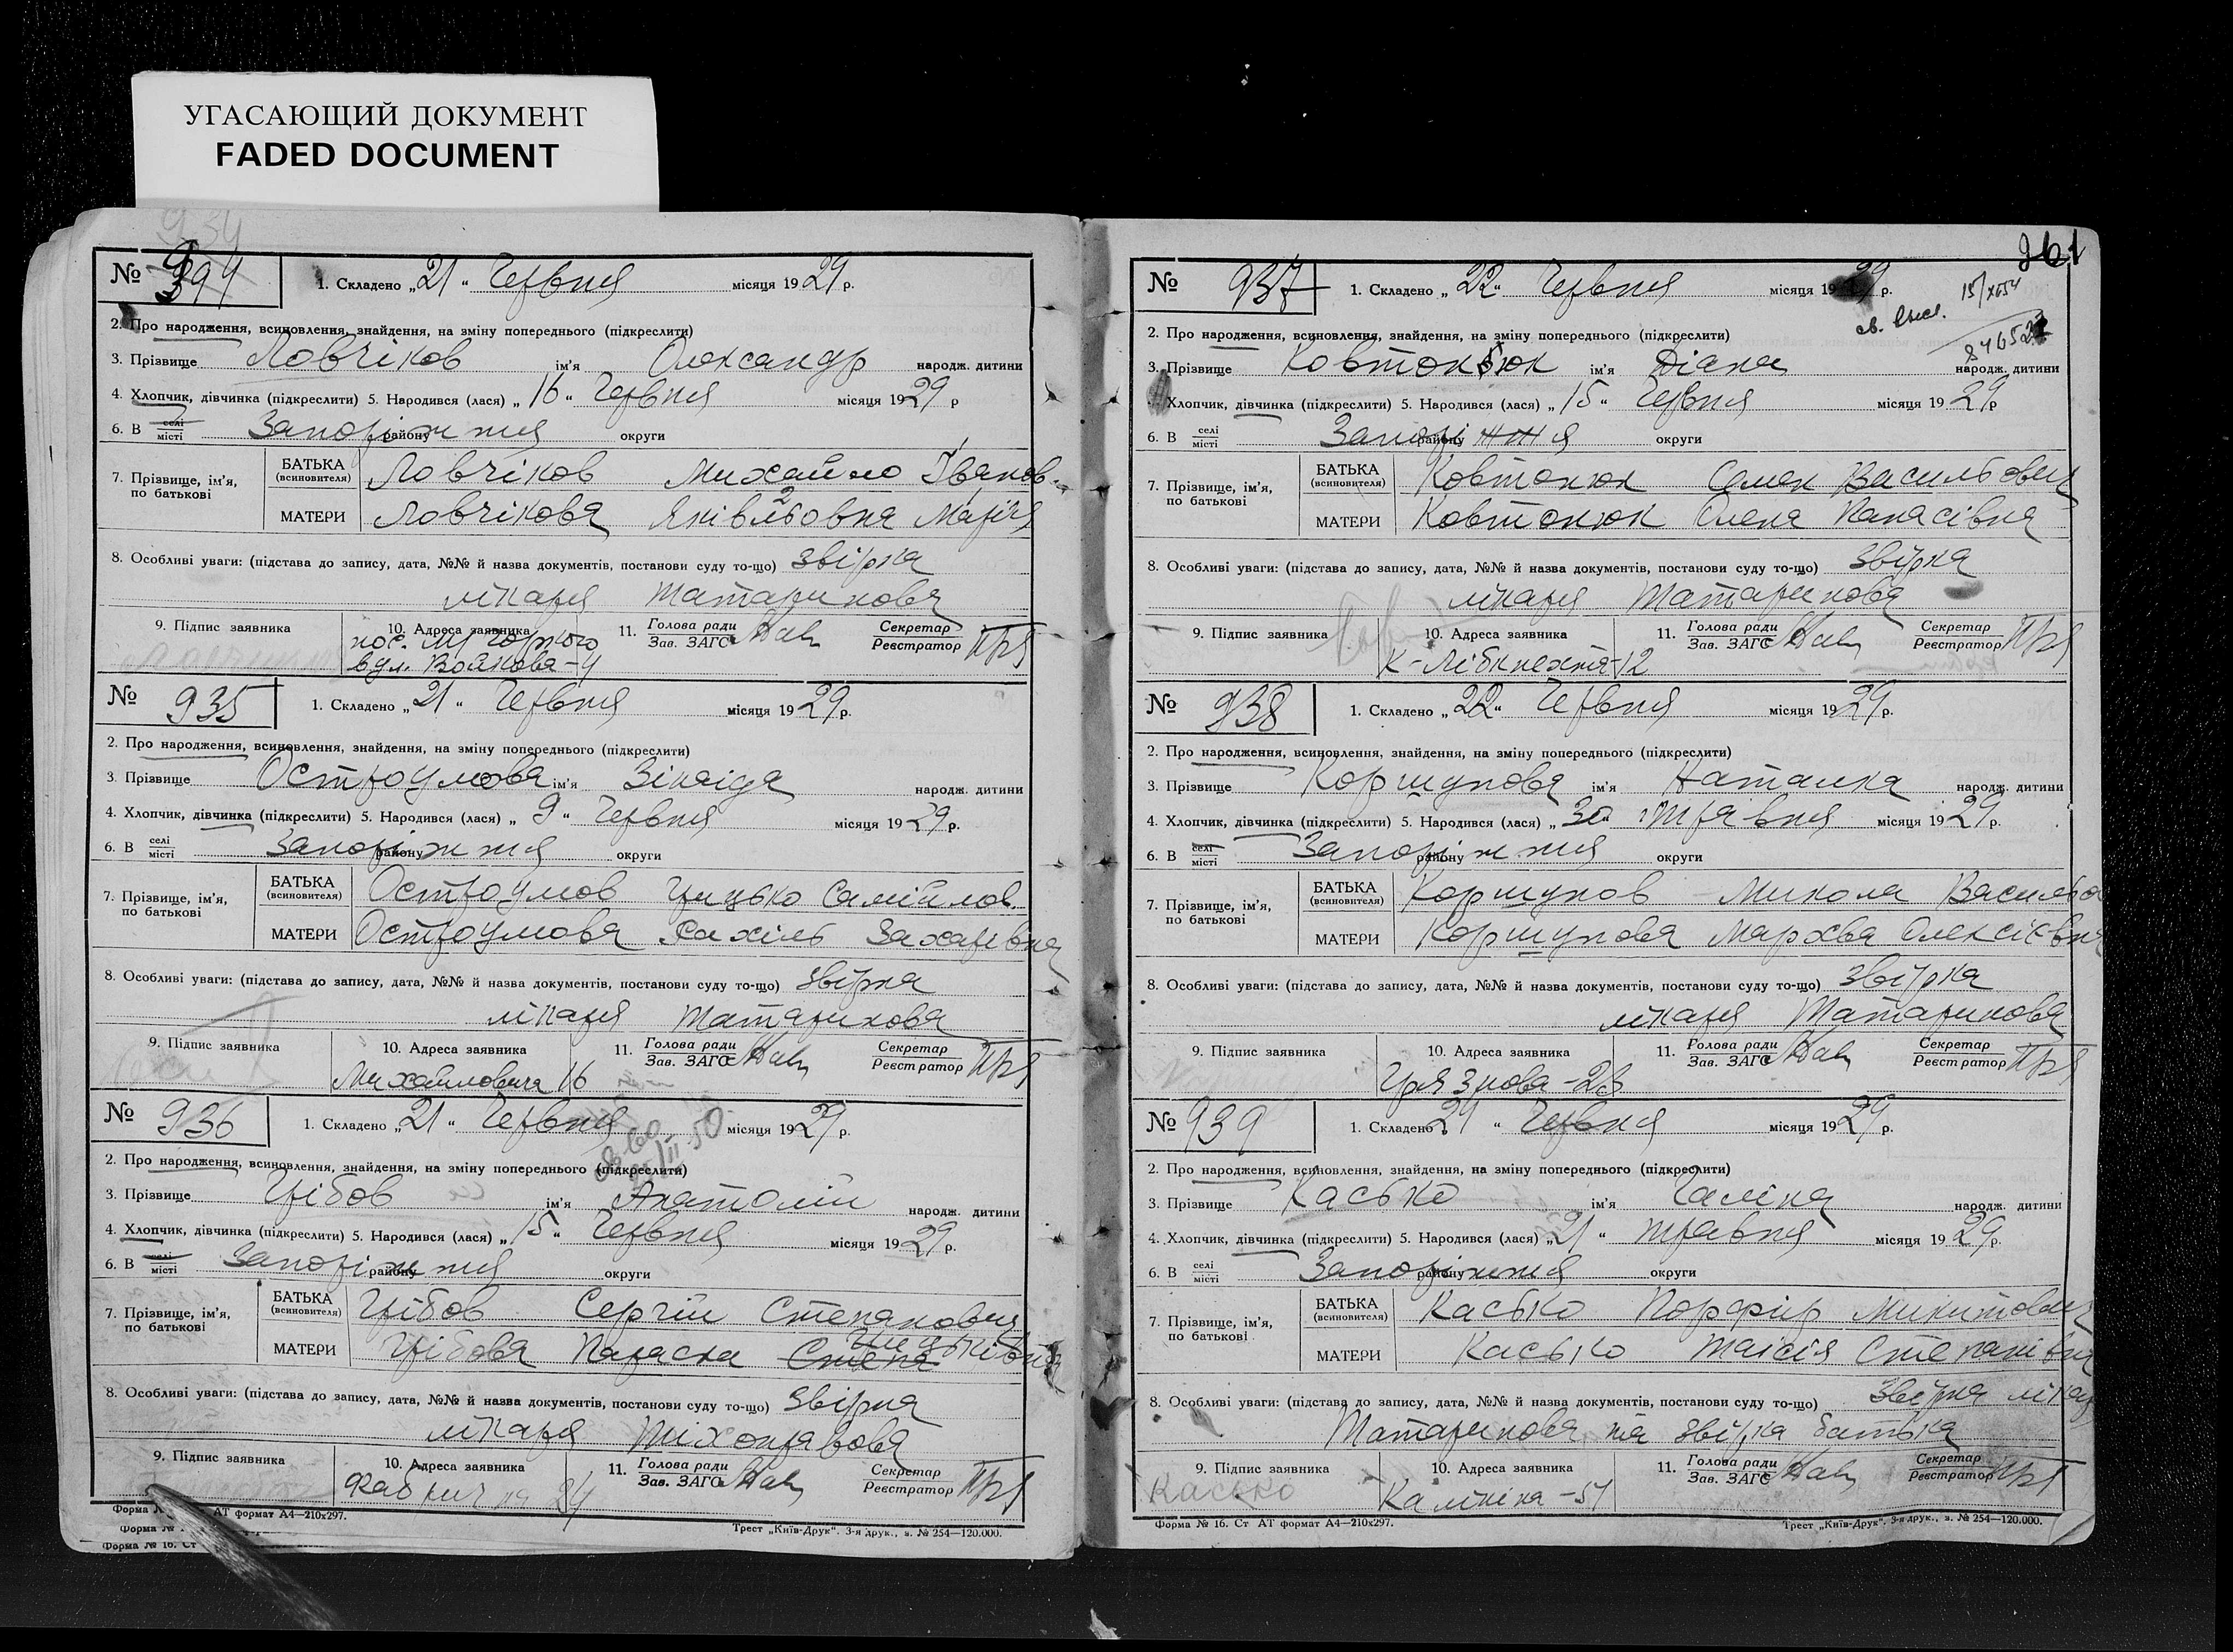 УГАСАЮЩИЙ ДОКУМЕНТ
FADED DOCUMENT
934
№ 394
1. Складено „21“ Червня місяця 1929 р.
2. Про народження, всиновлення, знайдення, на зміну попереднього (підкреслити)
3. Прізвище Ловчіков ім'я Олександр народж. дитини
4. Хлопчик, дівчинка (підкреслити) 5. Народився (лася) „16“ Червня місяця 1929 р
6. В селі місті Запоріжжя району округи
7. Прізвище, ім'я, по батькові
БАТЬКА (всиновителя) Ловчіков Михайло Іванов.
МАТЕРИ Ловчікова Яківльовна Марія
8. Особливі уваги: (підстава до запису, дата, №№ й назва документів, постанови суду то-що) Звірка
лікаря Татаринова
9. Підпис заявника 10. Адреса заявника 11. Голова ради Зав. ЗАГС Секретар Реєстратор
вул. Войкова-4
№ 935
1. Складено „21“ Червня місяця 1929 р.
2. Про народження, всиновлення, знайдення, на зміну попереднього (підкреслити)
3. Прізвище Остроумова ім'я Зінаіда народж. дитини
4. Хлопчик, дівчинка (підкреслити) 5. Народився (лася) „9“ Червня місяця 1929 р.
6. В селі місті Запоріжжя району округи
7. Прізвище, ім'я, по батькові
БАТЬКА (всиновителя) Остроумов Грицько Самійлов.
МАТЕРИ Остроумова Рахіль Захарівна
8. Особливі уваги: (підстава до запису, дата, №№ й назва документів, постанови суду то-що) Звірка
лікаря Татаринова
9. Підпис заявника 10. Адреса заявника 11. Голова ради Зав. ЗАГС Секретар Реєстратор
Михайловича 16
№ 936
1. Складено „21“ Червня місяця 1929 р.
2. Про народження, всиновлення, знайдення, на зміну попереднього (підкреслити)
3. Прізвище Грібов ім'я Анатолій народж. дитини
4. Хлопчик, дівчинка (підкреслити) 5. Народився (лася) „15“ Червня місяця 1929 р.
6. В селі місті Запоріжжя району округи
7. Прізвище, ім'я, по батькові
БАТЬКА (всиновителя) Грібов Сергій Степанович
МАТЕРИ Грібова Параска Степа Грицьківна
8. Особливі уваги: (підстава до запису, дата, №№ й назва документів, постанови суду то-що) Звірка
лікаря Тіхонравова
9. Підпис заявника 10. Адреса заявника 11. Голова ради Зав. ЗАГС Секретар Реєстратор
Фабрична 24
АТ формат А4—210х297. Трест „Київ-Друк“. 3-я друк., з. № 254—120.000.
Форма № 16. Ст
961
№ 937
1. Складено „22“ Червня місяця 1929 р.
2. Про народження, всиновлення, знайдення, на зміну попереднього (підкреслити)
3. Прізвище Ковтонюк ім'я Діана народж. дитини
4. Хлопчик, дівчинка (підкреслити) 5. Народився (лася) „15“ Червня місяця 1929 р
6. В селі місті Запоріжжя району округи
7. Прізвище, ім'я, по батькові
БАТЬКА (всиновителя) Ковтонюк Семен Васильович
МАТЕРИ Ковтонюк Олена Панасівна
8. Особливі уваги: (підстава до запису, дата, №№ й назва документів, постанови суду то-що) Звірка
лікаря Татаринова
9. Підпис заявника 10. Адреса заявника 11. Голова ради Зав. ЗАГС Секретар Реєстратор
К-Лібкнехта-12
№ 938
1. Складено „22“ Червня місяця 1929 р.
2. Про народження, всиновлення, знайдення, на зміну попереднього (підкреслити)
3. Прізвище Коршунова ім'я Наталка народж. дитини
4. Хлопчик, дівчинка (підкреслити) 5. Народився (лася) „30“ Травня місяця 1929 р.
6. В селі місті Запоріжжя району округи
7. Прізвище, ім'я, по батькові
БАТЬКА (всиновителя) Коршунов Микола
МАТЕРИ Коршунова Мархва Олексіївна
8. Особливі уваги: (підстава до запису, дата, №№ й назва документів, постанови суду то-що) Звірка
лікаря Татаринова
9. Підпис заявника 10. Адреса заявника 11. Голова ради Зав. ЗАГС Секретар Реєстратор
Грязнова-23
№ 939
1. Складено 21 “ Червня місяця 1929 р.
2. Про народження, всиновлення, знайдення, на зміну попереднього (підкреслити)
3. Прізвище Касько ім'я Галіна народж. дитини
4. Хлопчик, дівчинка (підкреслити) 5. Народився (лася) „21“ травня місяця 1929 р.
6. В селі місті Запоріжжя району округи
7. Прізвище, ім'я, по батькові
БАТЬКА (всиновителя) Касько Порфир Микитович
МАТЕРИ Касько Таісія Степанівна
8. Особливі уваги: (підстава до запису, дата, №№ й назва документів, постанови суду то-що) Звірка лікар
Татаринова та звірка батька
9. Підпис заявника 10. Адреса заявника 11. Голова ради Зав. ЗАГС Секретар Реєстратор
Касько Калініна-51
Форма № 16. Ст АТ формат А4—210х297. Трест „Київ-Друк“. 3-я друк., з. № 254—120.000.